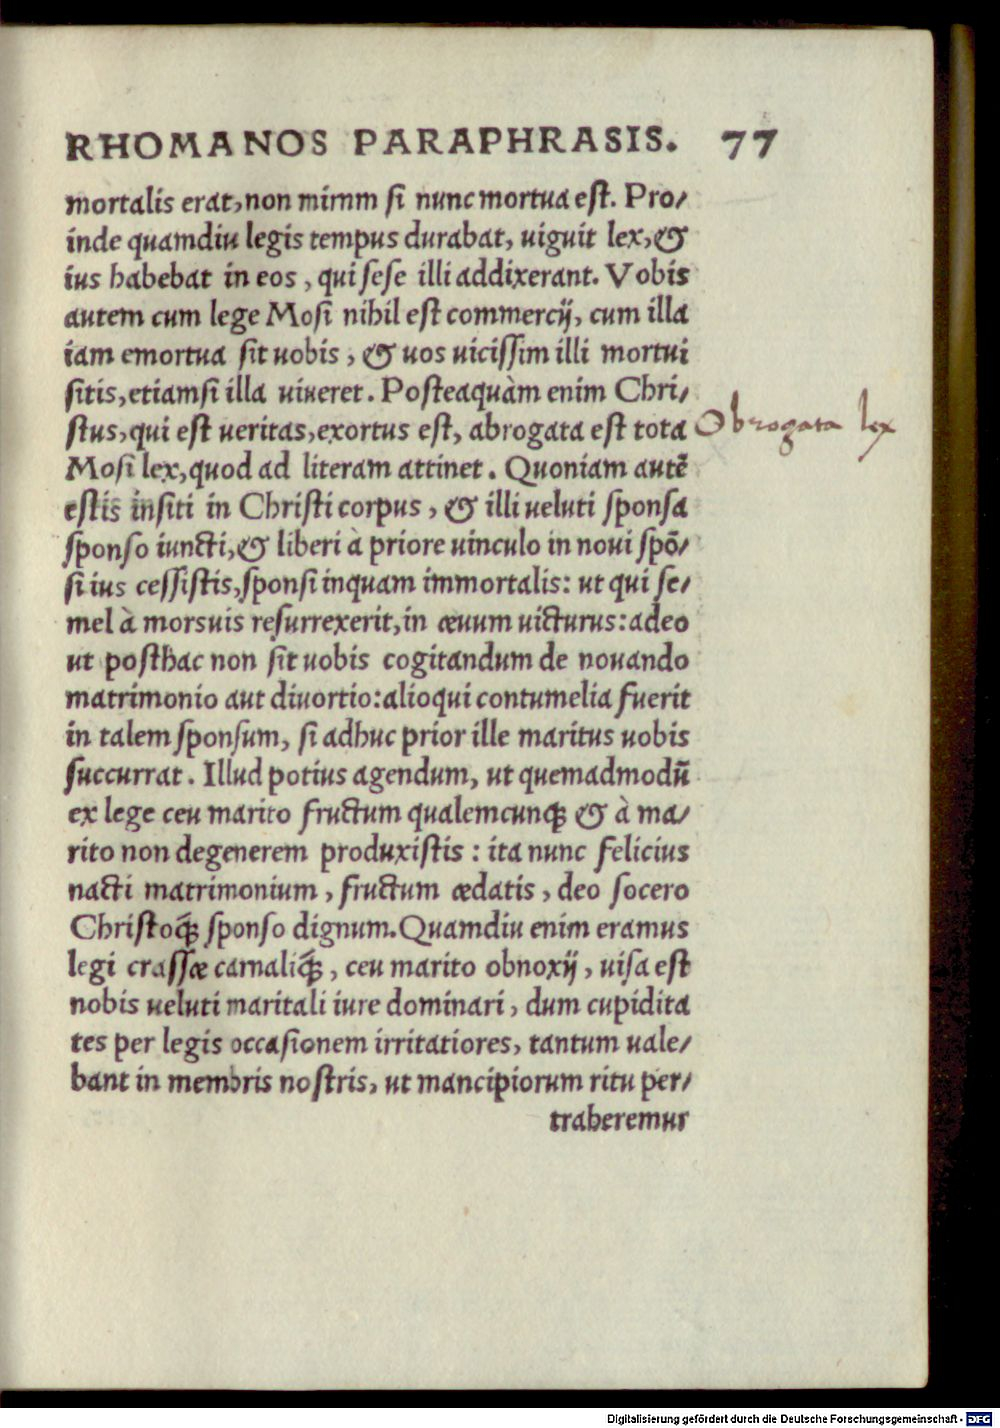 RHOMANOS PARAPHRASIS. 77
mortalis erat, non mirum si nunc mortua est. Pro/
inde quamdiu legis tempus durabat, uiguit lex, &
ius habebat in eos, qui sese illi addixerant. Vobis
autem cum lege Mosi nihil est commercij, cum illa
iam emortua sit uobis, & uos uicissim illi mortui
sitis, etiamsi illa uiueret. Posteaquàm enim Chri/
stus, qui est ueritas, exortus est, abrogata est tota
Obrogata lex
Mosi lex, quod ad literam attinet. Quoniam autẽ
estis insiti in Christi corpus, & illi ueluti sponsa
sponso iuncti, & liberi à priore uinculo in noui spõ/
si ius cessistis, sponsi inquam immortalis: ut qui se/
mel à morsuis resurrexerit, in æuum uicturus: adeo
ut posthac non sit uobis cogitandum de nouando
matrimonio aut diuortio: alioqui contumelia fuerit
in talem sponsum, si adhuc prior ille maritus uobis
succurrat. Illud potius agendum, ut quemadmodũ
ex lege ceu marito fructum qualemcunq; & à ma/
rito non degenerem produxistis: ita nunc felicius
nacti matrimonium, fructum ædatis, deo socero
Christoq; sponso dignum. Quamdiu enim eramus
legi crassæ carnaliq;, ceu marito obnoxij, uisa est
nobis ueluti maritali iure dominari, dum cupidita
tes per legis occasionem irritatiores, tantum uale/
bant in membris nostris, ut mancipiorum ritu per/
traheremur
Digitalisierung gefördert durch die Deutsche Forschungsgemeinschaft - DFG